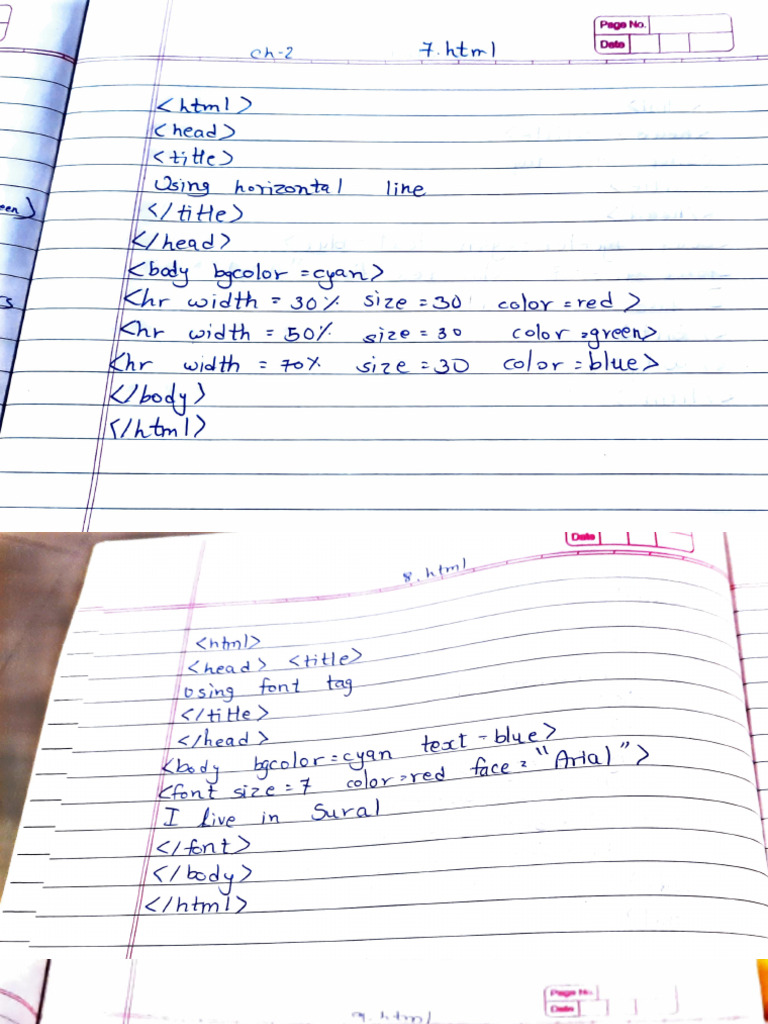 Page No.
Date
ch-2 7.html
<html>
<head>
<title>
Using horizontal line
</title>
</head>
<body bgcolor=cyan>
<hr width = 30% size = 30 color = red >
<hr width = 50% size = 30 color =green>
<hr width = 70% size = 30 color = blue>
</body>
</html>
Date
8.html
<html>
<head> <title>
Using font tag
</title>
</head>
<body bgcolor=cyan text = blue>
<font size=7 color=red face = "Arial">
I live in Sural
</font>
</body>
</html>
Page No.
Date
9.html